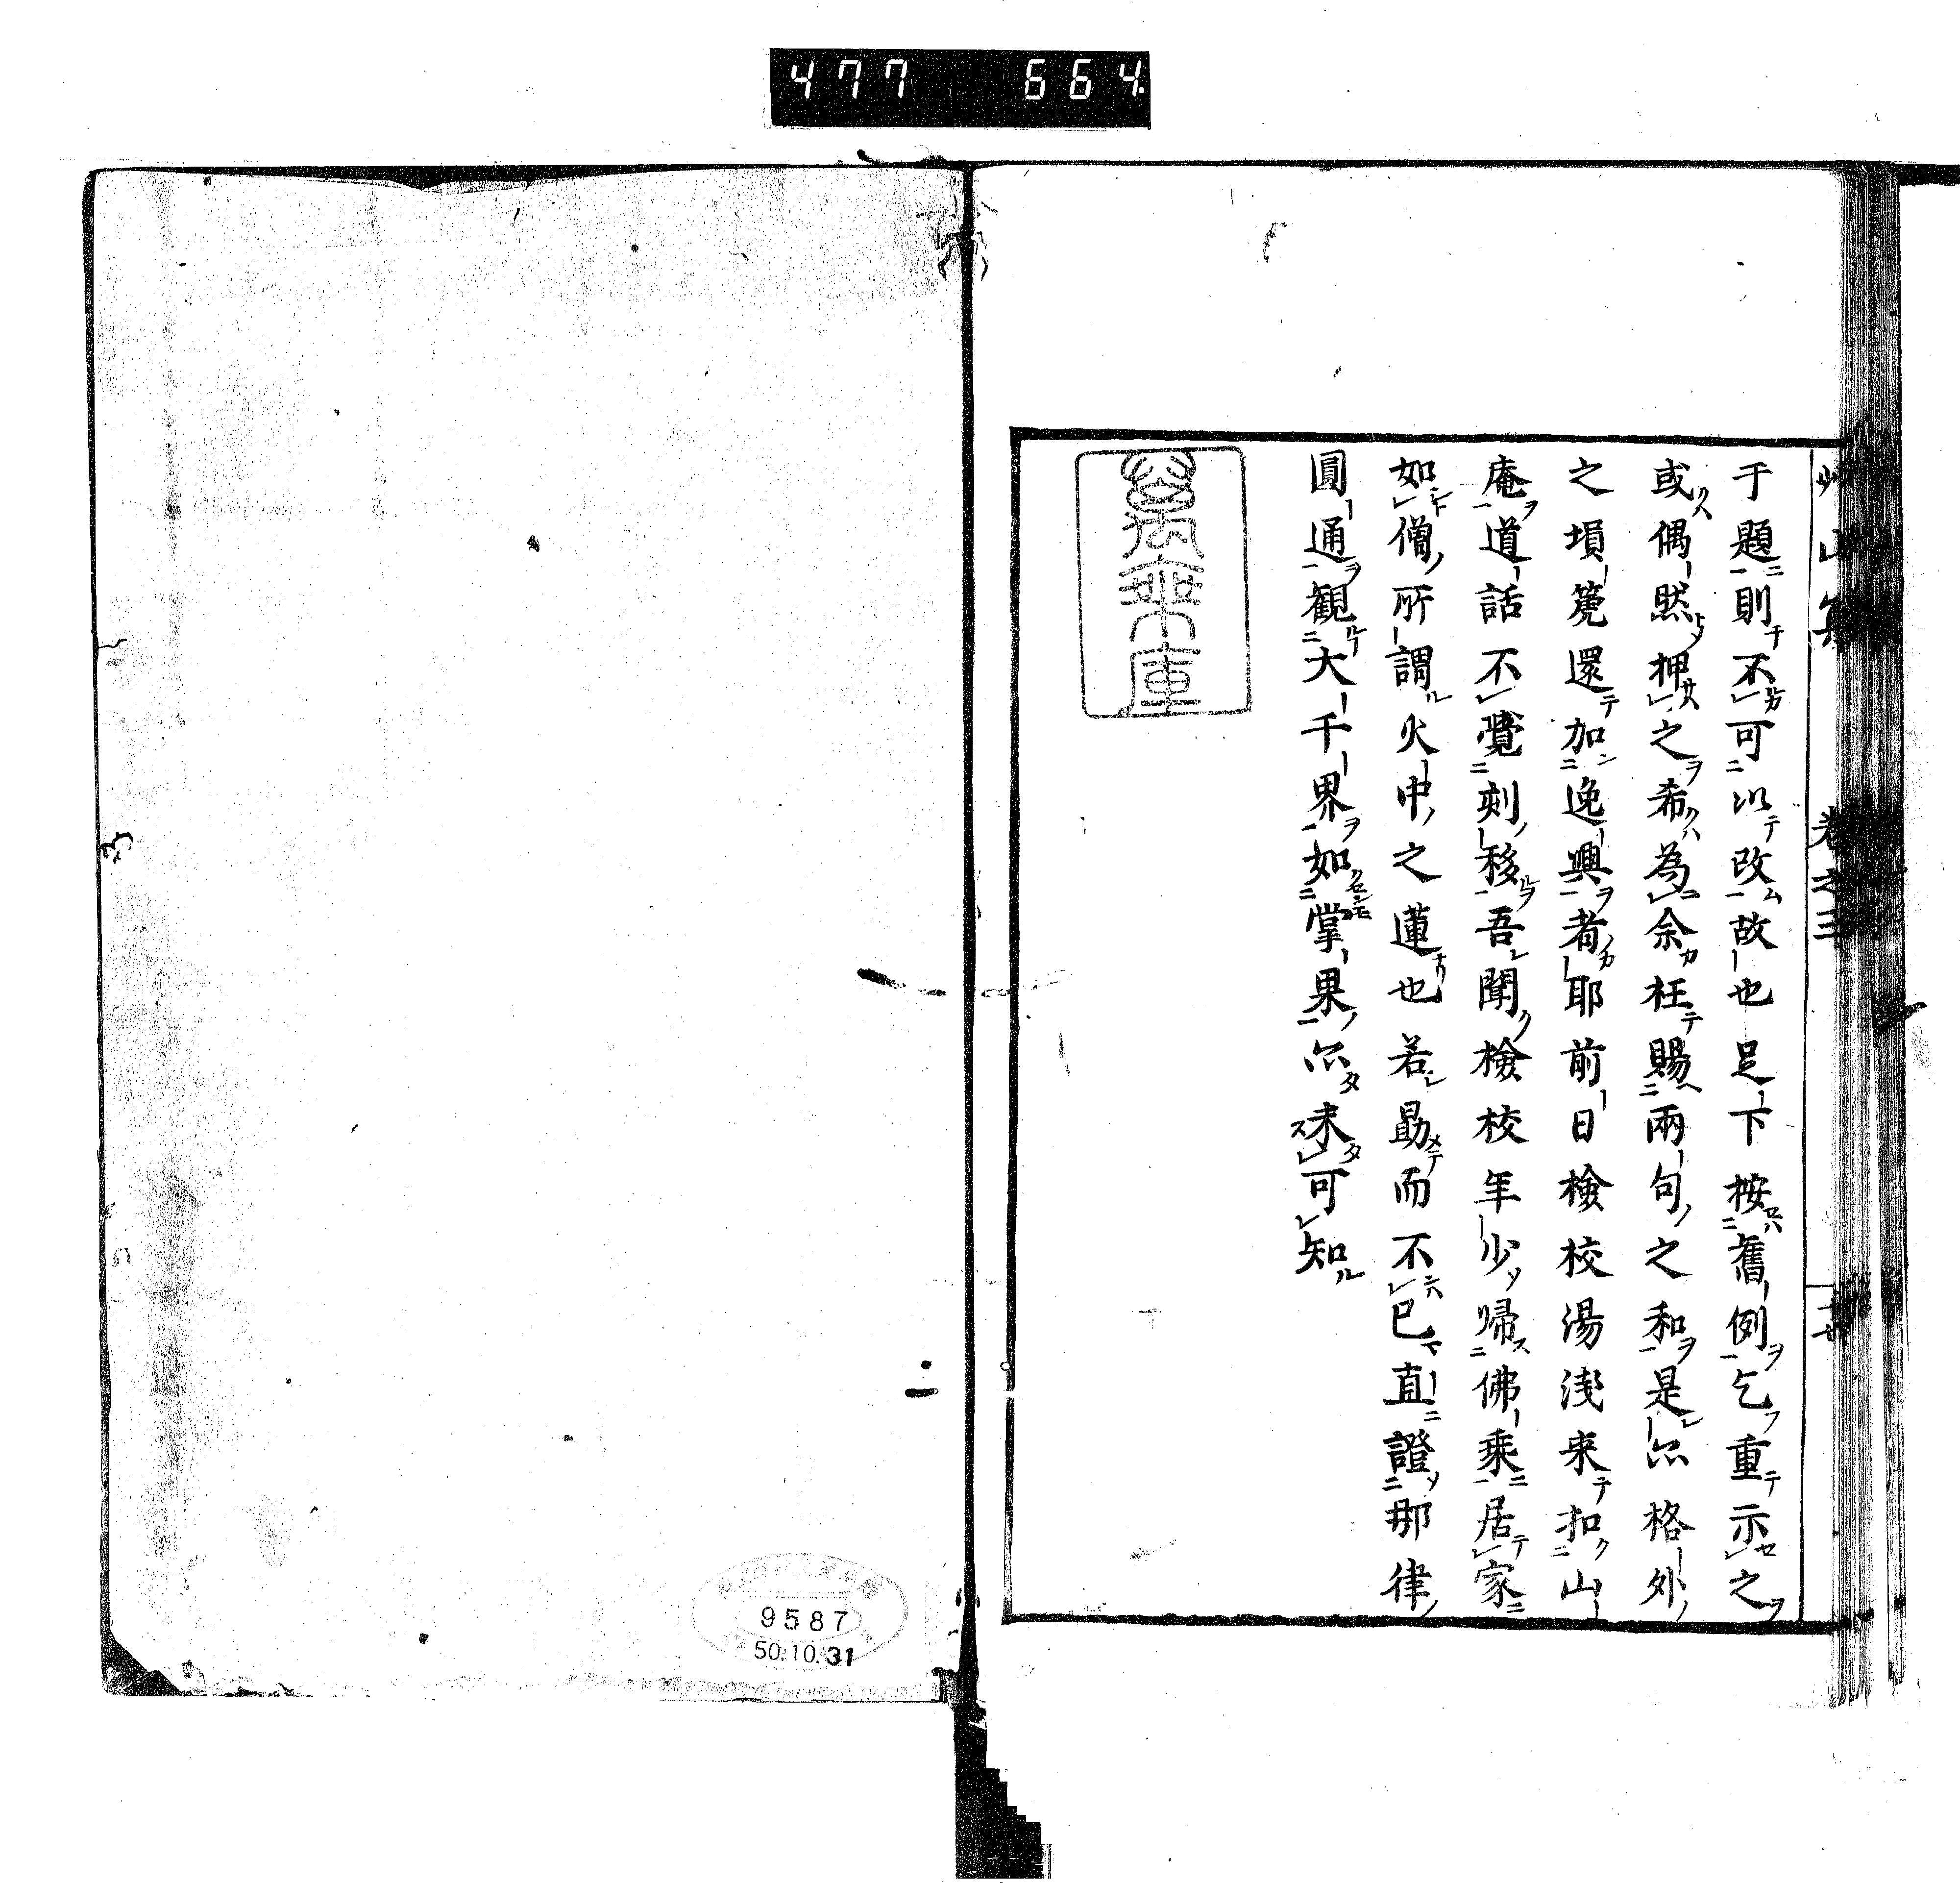 477 664
于題則不可以改故也足下按舊例乞重示之
或偶然押之希為余枉賜兩句之和是尒格外
之塤箎還加逸興者耶前日檢校湯浅来扣山
庵道話不覺刻移吾聞檢校年少歸佛乗居家
如僧所謂火中之蓮也若勗而不已直證那律
圓通觀大千界如掌果尒未可知
9587
50.10.31